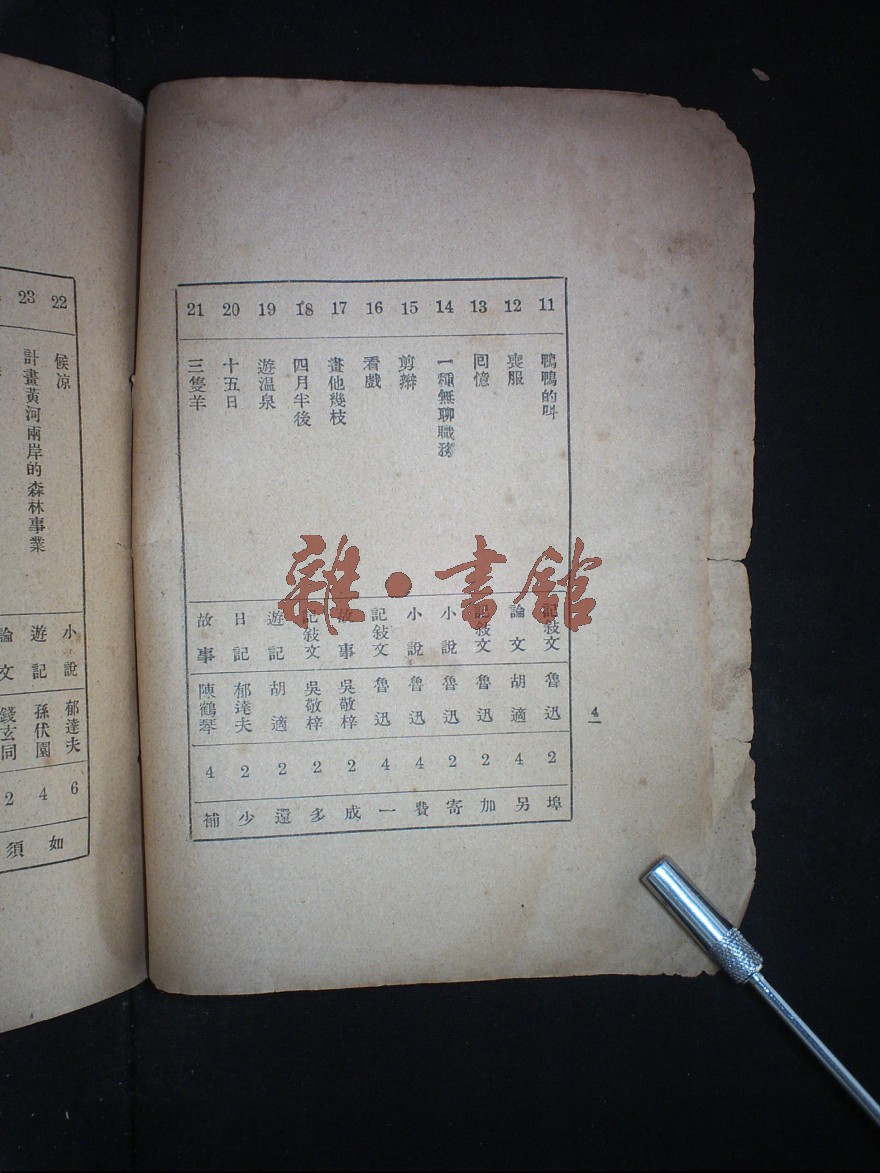 11 鴨鴨的叫 記敍文 魯迅 2 埠
12 喪服 論文 胡適 4 另
13 囘憶 記敍文 魯迅 2 加
14 一種無聊職務 小說 魯迅 2 寄
15 剪辮 小說 魯迅 4 費
16 看戲 記敍文 魯迅 4 一
17 畫他幾枝 故事 吳敬梓 2 成
18 四月半後 記敍文 吳敬梓 2 多
19 遊溫泉 遊記 胡適 2 還
20 十五日 日記 郁達夫 2 少
21 三隻羊 故事 陳鶴琴 4 補
4
22 候凉 小說 郁達夫 6 如
23 計畫黃河兩岸的森林事業 遊記 孫伏園 4 須
論文 錢玄同 2
雜·書館